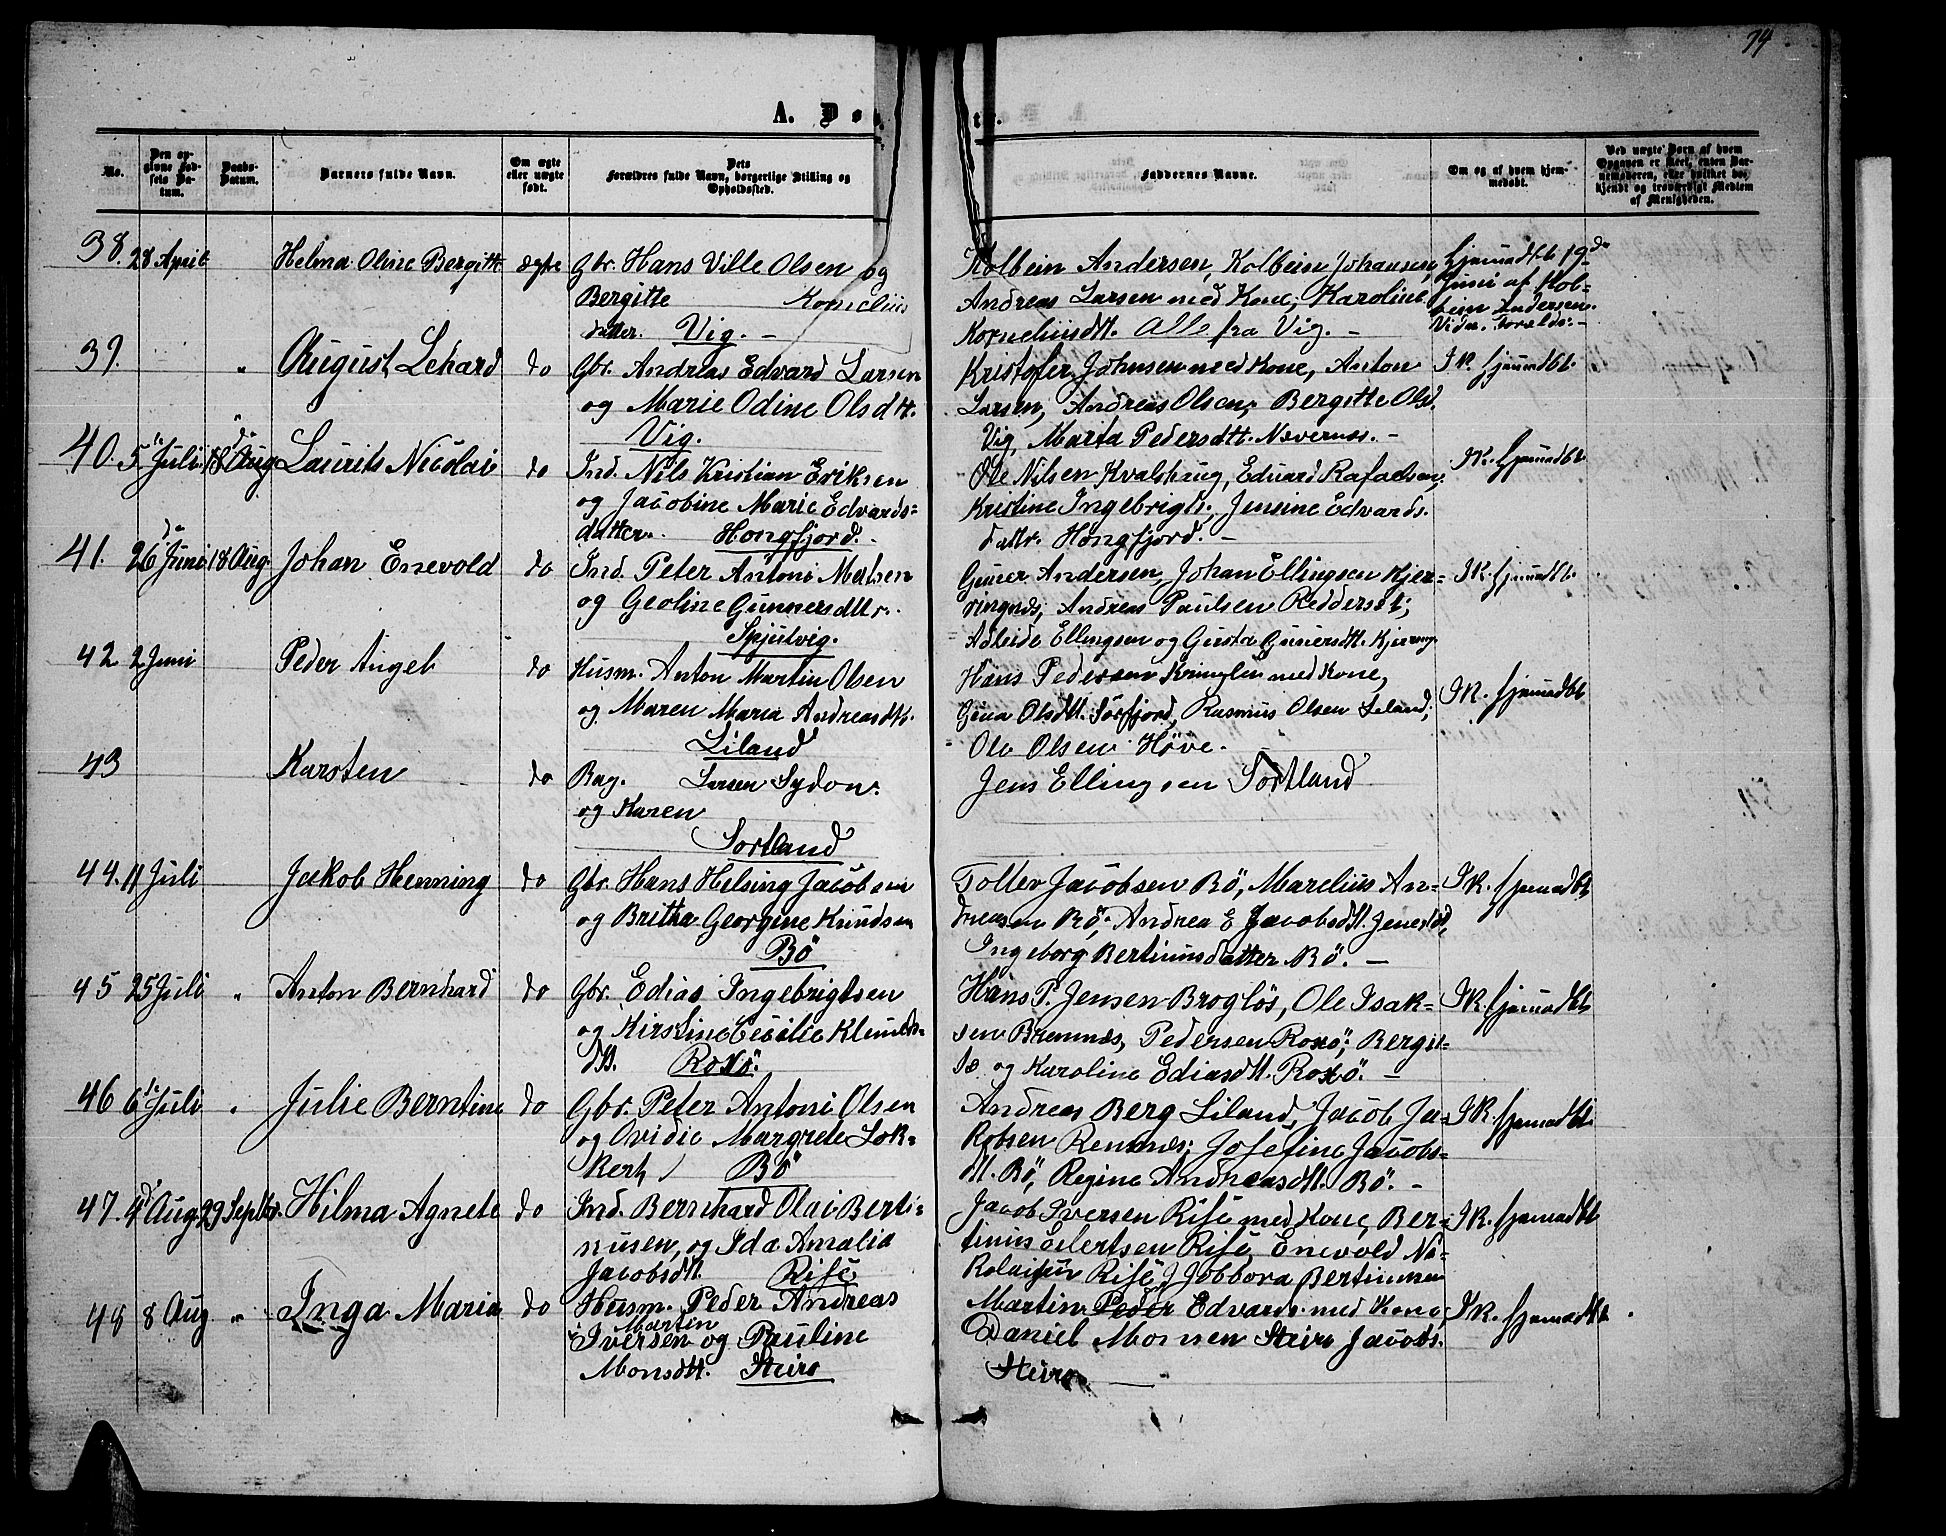 74
A. Dø
te.
No.
Den opgivne Fødsels Datum.
Daabs-Datum.
Barnets fulde Navn.
Om ægte eller uægte født.
Dets Forældres fulde Navn, borgerlige Stilling og Opholdssted.
Faddernes Navne.
Om og af hvem hjemmedøbt.
38. 28 April " Helma Oline Bergitte ægte Gbr. Hans Ville Olsen og
Bergitte Kornelius
datter. Vig. —
Kolbein Andersen, Kolbein Johansen,
Andreas Larsen med Kone; Karoline
Korneliusdtt. Alle fra Vig. —
Hjemdbt 19de
Juni af Kol-
bein Andersen
39. " August Lehard do Gbr. Andreas Edvard Larsen
og Marie Odine Olsdtt.
Vig.
Kristofer Johnsen med Kone, Anton
Larsen, Andreas Olsen; Bergitte Olsd.
Vig, Marta Pedersdtt. Nævernes. —
IK. hjemdbt.
40. 5 Juli 18 Aug Laurits Nicolai do Ind. Nils Kristian Eriksen
og Jacobine Marie Edvards-
datter. Hongfjord. -
Ole Nilsen Kvalshaug, Edvard Rafaelsen,
Kristine Ingebrigts., Jensine Edvards.
dattr. Hongfjord. —
IK. hjemdbt.
41. 26 Juni 18 Aug. Johan Enevold do Ind. Peter Antoni Matsen
og Geoline Gunnersdttr.
Spjutvig.
Guner Andersen, Johan Ellingsen Kjer-
ringnes, Andreas Paulsen Redderset;
Adleide Ellingsen og Gusta Gunersdtt. Kjerring.
IK. hjemdbt.
42 2 Juni Peder Angel do Husm. Anton Martin Olsen
og Maren Maria Andreasdtt.
Liland
Hans Pedersen Kringlen med Kone,
Gina Olsdtt. Sörfjord, Rasmus Olsen Liland;
Ole Olsen Höve.
IK. hjemdbt
43 Karsten do Bag. Larsen Sydon.
og Karen
Sortland
Jens Ellingsen Sortland
44. 11 Juli Jakob Henning do Gbr. Hans Helsing Jacobsen
og Britha Georgine Knudsen
Bö
Tollev Jacobsen Bö, Marelius An-
dreasen Bö; Andrea E Jacobsdtt.
Ingeborg Bertinusdatter Bö. —
IK. hjemdbt
45 25 Juli " Anton Bernhard do Gbr. Edias Ingebrigtsen
og Kirstine Cecilie Klemets-
dtt. Roxö.
Hans P. Jensen Brogløs, Ole Isak-
sen Bremnes, Pedersen Roxö; Bergit-
te og Karoline Ediasdtt. Roxö. —
IK. hjemdbt
46 6te Juli " Julie Berntine do Gbr. Peter Antoni Olsen
og Ovidie Margrete Lok-
kert, Bö
Andreas Berg Liland, Jacob Ja-
kobsen Rennes; Josefine Jacobs-
dtt. Bö, Regine Andreasdtt. Bö. —
IK. hjemdbt.
47. 4 Aug. 29 Septbr. Hilma Agnete do Ind. Bernhard Olai Berti-
nusen, og Ida Amalia
Jacobsdtt. Risë
Jacob Iversen Risë med Kone, Ber-
tinus Eilertsen Risë, Enevold Ni-
kolaisen Risë, Jobbora Bertinusen
IK. hjemdbt
48 8 Aug " Inga Maria do Husm. Peder Andreas
Martin
Iversen og Pauline
Monsdtt. Steiro
Martin Peder Edvards. med Kone,
Daniel Monsen Steiro Jacobs.
Steiro. —
IK. hjemdbt.